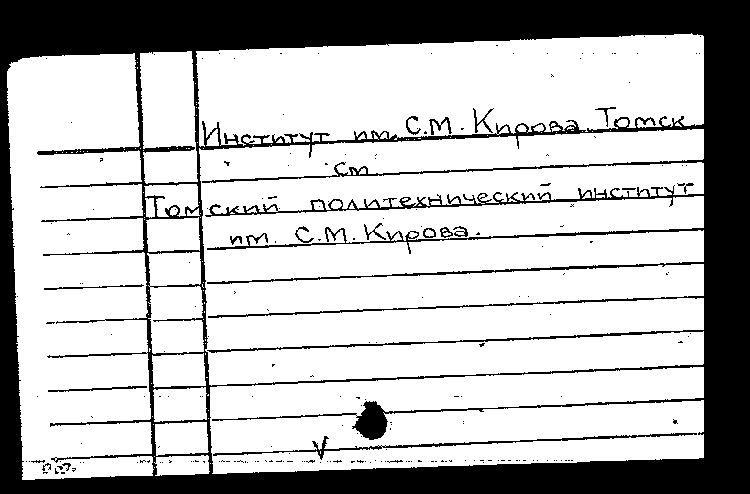 Институт им. С.М. Кирова. Томск
см
Томский политехнический институт
им. С.М. Кирова.
V